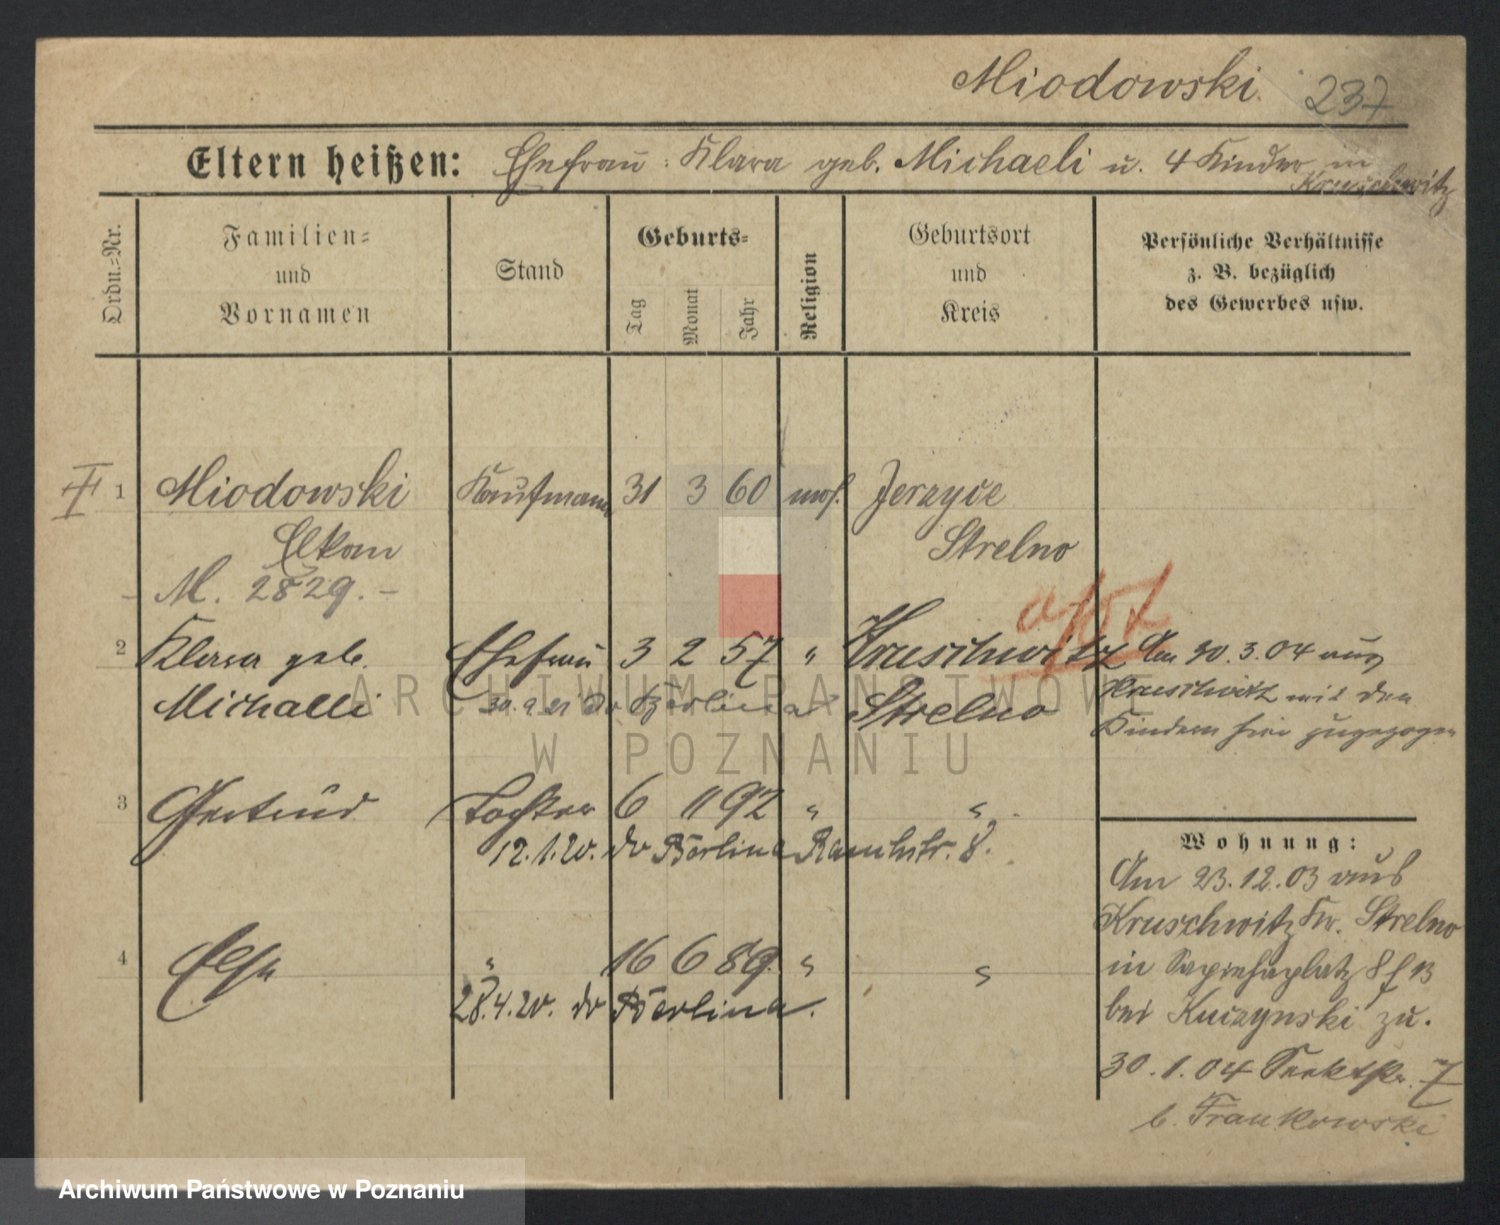 Miodowski. 237
Eltern heißen: Ehefrau: Klara geb. Michaeli u. 4 Kinder in
Kruschwitz
Ordn.=Nr.
Familien=
und
Vornamen
Stand
Geburts=
Tag
Monat
Jahr
Religion
Geburtsort
und
Kreis
Persönliche Verhältnisse
z. B. bezüglich
des Gewerbes usw.
1 Miodowski Kaufmann 31 3 60 mos. Jerzyce
Elkan Strelno
M. 2829.-
2 Klara geb. Ehefrau 3 2 57 " Kruschwitz
Michaelli 30.9.21 Berlin Strelno
Am 30.3.04 aus
Kruschwitz mit den
Kindern hier zugezogen
3 Gertrud Tochter 6 11 92 " "
12.1.20. Berlin 8.
4 " 16 6 89. " "
28.4.20. Berlin
Wohnung:
Am 23.12.03 aus
Kruschwitz Kr. Strelno
in Sapiehaplatz 8
bei zu.
30.1.04 7
b. Frankowski
ARCHIWUM PAŃSTWOWE
W POZNANIU
Archiwum Państwowe w Poznaniu